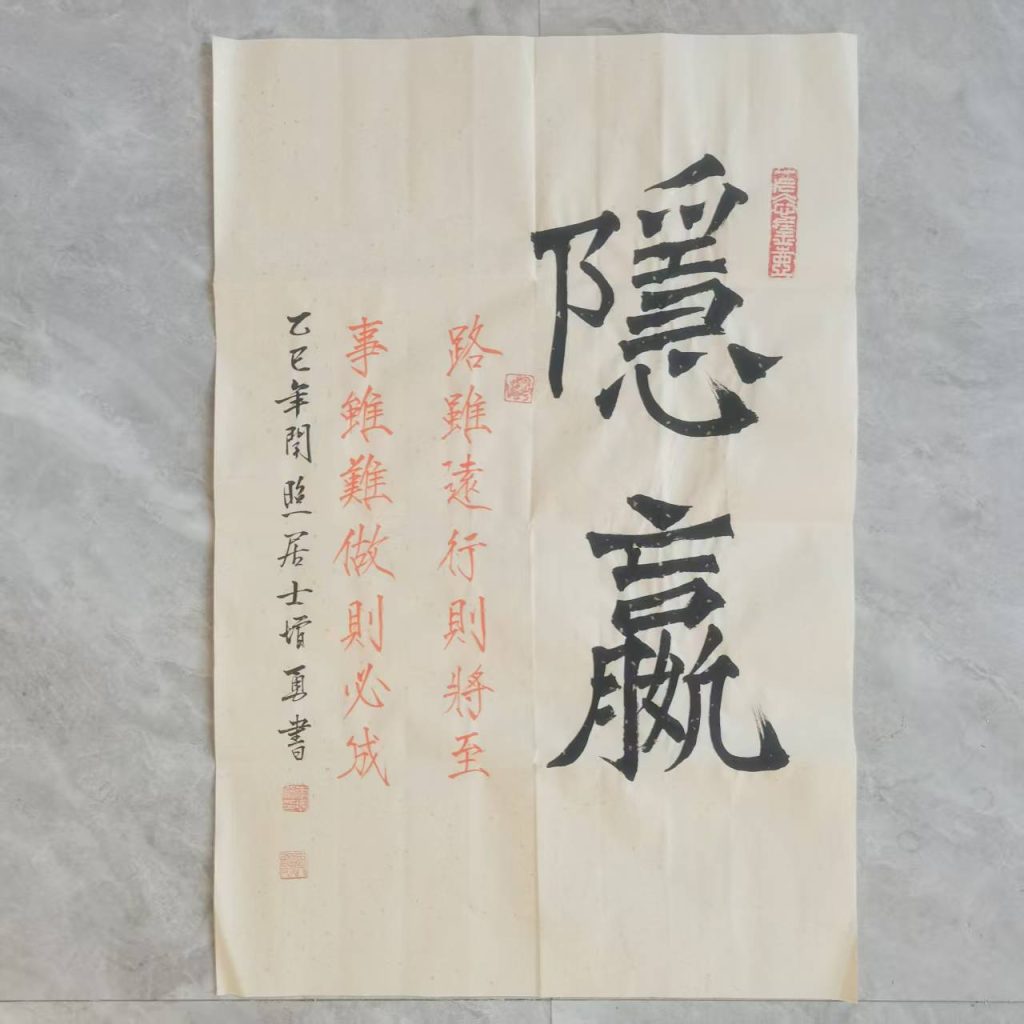 隱嬴
路雖遠行則將至
事雖難做則必成
乙巳年照居士勇書